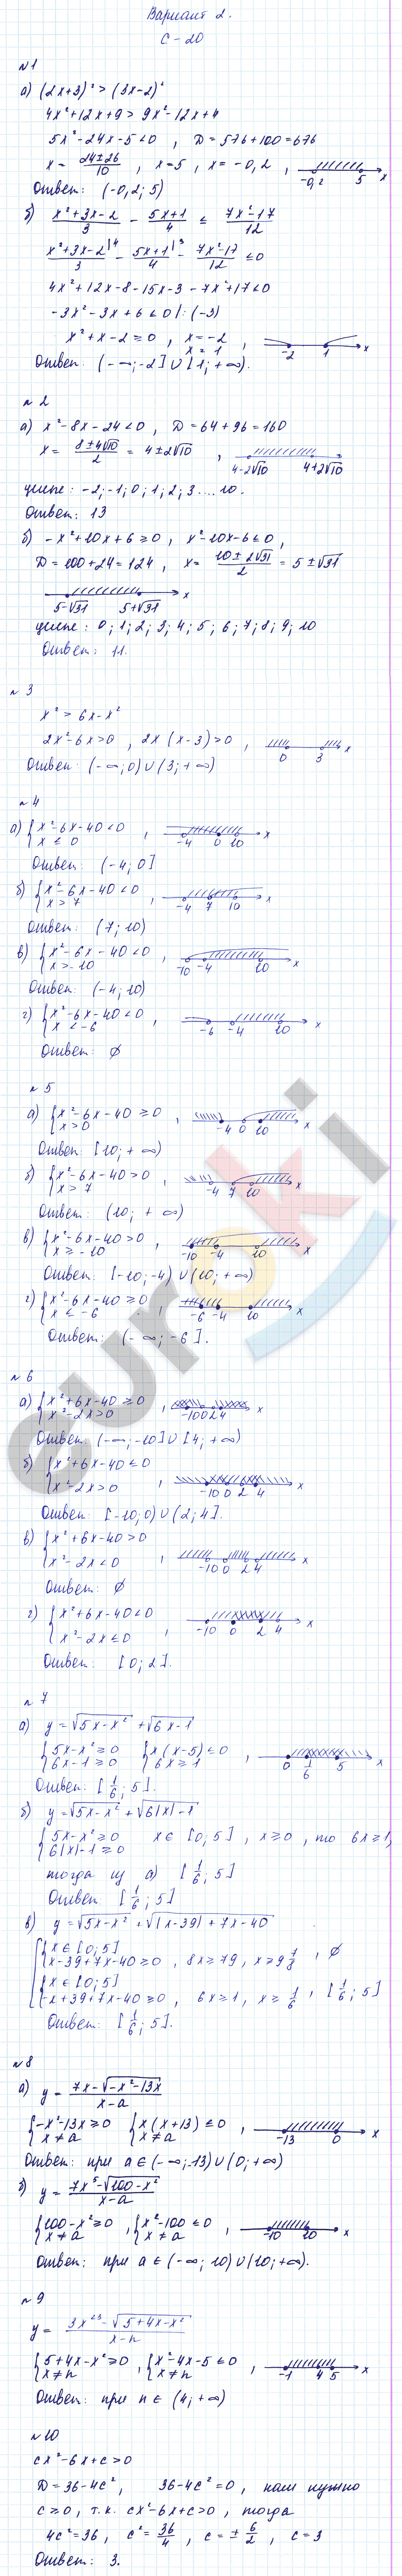 Вариант 2.
С-20
№1
а) (2x+3)² > (3x-2)²
4x²+12x+9 > 9x²-12x+4
5x²-24x-5<0 , D=576+100=676
x = (24±26)/10 , x=5 , x=-0,2 , -0,2 5 x
Ответ: (-0,2; 5)
б) (x²+3x-2)/3 - (5x+1)/4 ≤ (7x²-17)/12
(x²+3x-2|4)/3 - (5x+1|3)/4 - (7x²-17)/12 ≤0
4x²+12x-8-15x-3-7x²+17<0
-3x²-3x+6<0 |:(-3)
x²+x-2≥0 , x=-2
x=1 , -2 1 x
Ответ: (-∞;-2]∪[1;+∞).
№2
а) x²-8x-24<0 , D=64+96=160
x= (8±4√10)/2 = 4±2√10 , 4-2√10 4+2√10
целые: -2;-1;0;1;2;3....10.
Ответ: 13
б) -x²+10x+6≥0 , x²-10x-6≤0 ,
D=100+24=124 , x= (10±2√31)/2 = 5±√31
5-√31 5+√31 x
целые: 0;1;2;3;4;5;6;7;8;9;10
Ответ: 11.
№3
x² > 6x-x²
2x²-6x>0 , 2x(x-3)>0 , 0 3 x
Ответ: (-∞;0)∪(3;+∞)
№4
а) {x²-6x-40<0
x≤0 , -4 0 10 x
Ответ: (-4;0]
б) {x²-6x-40<0
x>7 , -4 7 10 x
Ответ: (7;10)
в) {x²-6x-40<0
x>-10 , -10 -4 10 x
Ответ: (-4;10)
г) {x²-6x-40<0
x<-6 , -6 -4 10 x
Ответ: ∅
№5
а) {x²-6x-40≥0
x>0 , -4 0 10 x
Ответ: [10;+∞)
б) {x²-6x-40>0
x>7 , -4 7 10 x
Ответ: (10;+∞)
в) {x²-6x-40>0
x≥-10 , -10 -4 10 x
Ответ: [-10;-4)∪(10;+∞)
г) {x²-6x-40≥0
x<-6 , -6 -4 10 x
Ответ: (-∞;-6].
№6
а) {x²+6x-40≥0
x²-2x>0 , -10 0 2 4 x
Ответ: (-∞;-10]∪[4;+∞)
б) {x²+6x-40≤0
x²-2x>0 , -10 0 2 4 x
Ответ: [-10;0)∪(2;4].
в) {x²+6x-40>0
x²-2x<0 , -10 0 2 4 x
Ответ: ∅
г) {x²+6x-40<0
x²-2x≤0 , -10 0 2 4 x
Ответ: [0;2].
№7
а) y=√(5x-x²) +√(6x-1)
{5x-x²≥0 {x(x-5)≤0
6x-1≥0 6x≥1 , 0 1/6 5 x
Ответ: [1/6;5].
б) y=√(5x-x²) +√(6|x|-1)
{5x-x²≥0 x∈[0;5] , x≥0 , то 6x≥1,
6|x|-1≥0
тогда из а) [1/6;5]
Ответ: [1/6;5]
в) y=√(5x-x²) +√(|x-39|+7x-40)
{x∈[0;5]
x-39+7x-40≥0 , 8x≥79 , x≥9 7/8 , ∅
{x∈[0;5]
-x+39+7x-40≥0 , 6x≥1 , x≥1/6 , [1/6;5]
Ответ: [1/6;5].
№8
а) y= (7x-√(-x²-13x))/(x-a)
{-x²-13x≥0 {x(x+13)≤0
x≠a x≠a , -13 0 x
Ответ: при a∈(-∞;-13)∪(0;+∞)
б) y= (7x⁵-√(100-x²))/(x-a)
{100-x²≥0 , {x²-100≤0
x≠a x≠a , -10 10 x
Ответ: при a∈(-∞;10)∪(10;+∞).
№9
y= (3x²³-√(5+4x-x²))/(x-n)
{5+4x-x²≥0 , {x²-4x-5≤0
x≠n x≠n , -1 4 5 x
Ответ: при n∈(4;+∞)
№10
cx²-6x+c>0
D=36-4c² , 36-4c²=0 , нам нужно
c≥0 , т.к. cx²-6x+c>0 , тогда
4c²=36 , c²=36/4 , c=±6/2 , c=3
Ответ: 3.
euroki